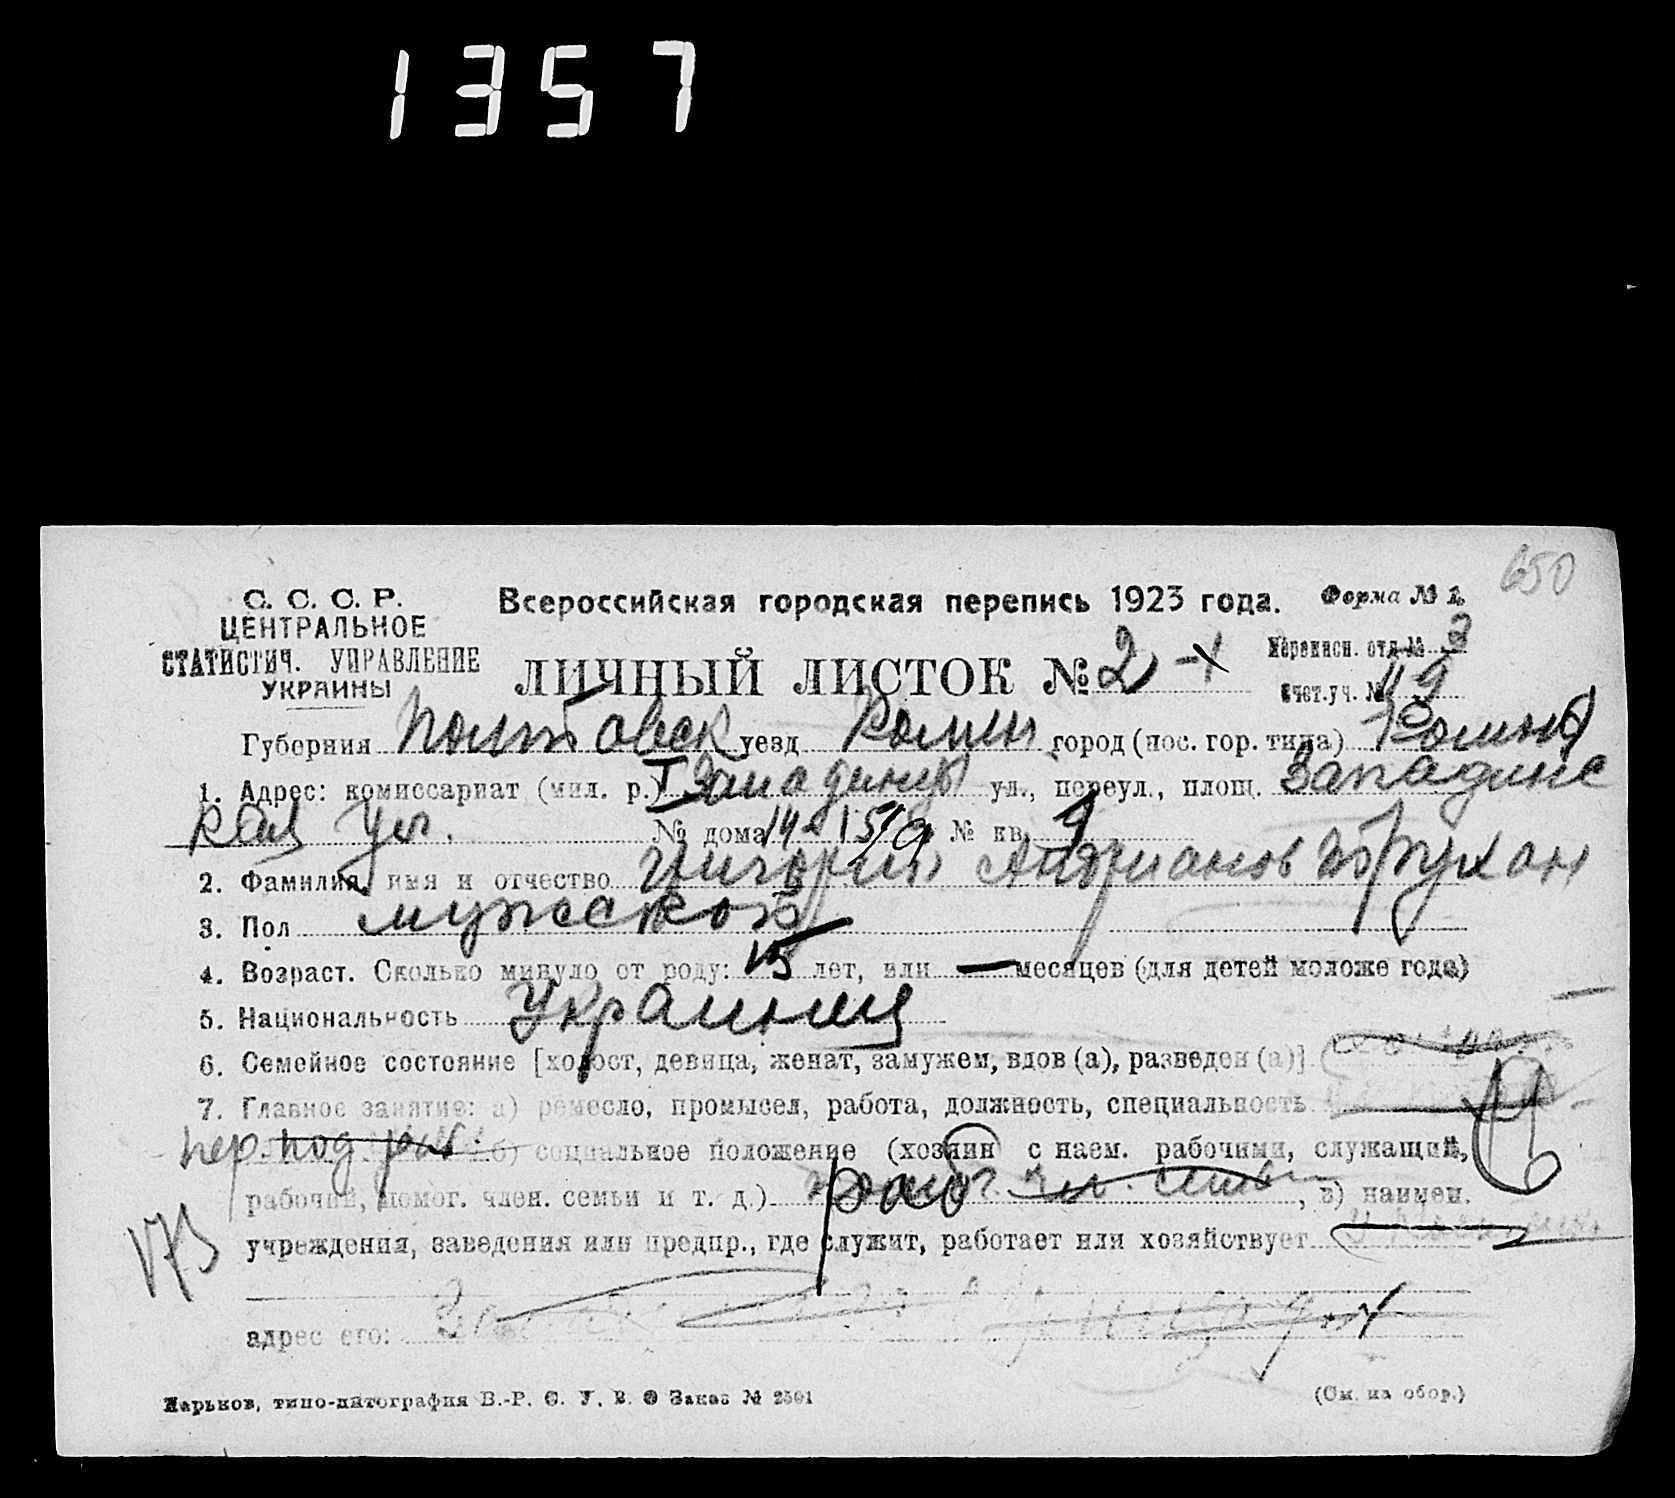 1357
650
С. С. С. Р.
ЦЕНТРАЛЬНОЕ
СТАТИСТИЧ. УПРАВЛЕНИЕ
УКРАИНЫ
Всероссийская городская перепись 1923 года.
Форма № 2.
ЛИЧНЫЙ ЛИСТОК № 2
Переписн. отд. № 3
Счет. уч. № 9
Губерния Полтавск уезд Ромны город (пос. гор. типа) Ромны
1. Адрес: комиссариат (мил. р.) I Западинцы ул., переул., площ. Западинс
кая ул. № дома 14 № кв. 1
2. Фамилия, имя и отчество Григорий Андрианов
3. Пол мужской
4. Возраст. Сколько минуло от роду: 15 лет, или — месяцев (для детей моложе года)
5. Национальность Украинец
6. Семейное состояние [холост, девица, женат, замужем, вдов (а), разведен (а)]
7. Главное занятие: а) ремесло, промысел, работа, должность, специальность
б) социальное положение (хозяин с наем. рабочими, служащий,
рабочий, помог. член. семьи и т. д.) раб , в) наимен.
173
учреждения, заведения или предпр., где служит, работает или хозяйствует
адрес его:
Харьков, типо-литография В.-Р. С. У. В. О Заказ № 2501
(См. на обор.)